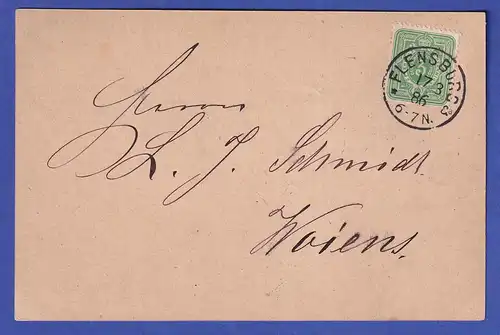 * FLENSBURG * 3
17 3
86
6-7 N.
Herrn
L. J. Schmidt.
Woiens.